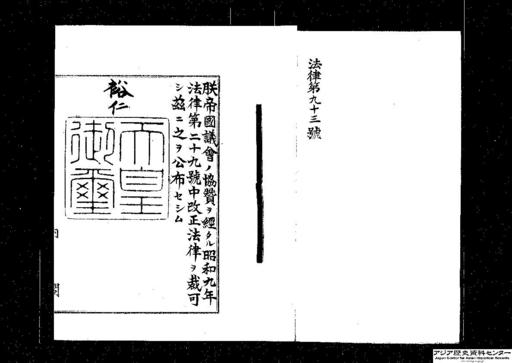 法律第九十三號
朕帝國議會ノ協贊ヲ經タル昭和九年
法律第二十九號中改正法律ヲ裁可
シ茲ニ之ヲ公布セシム
裕仁
天皇
御璽
内閣
アジア歴史資料センター
Japan Center for Asian Historical Records